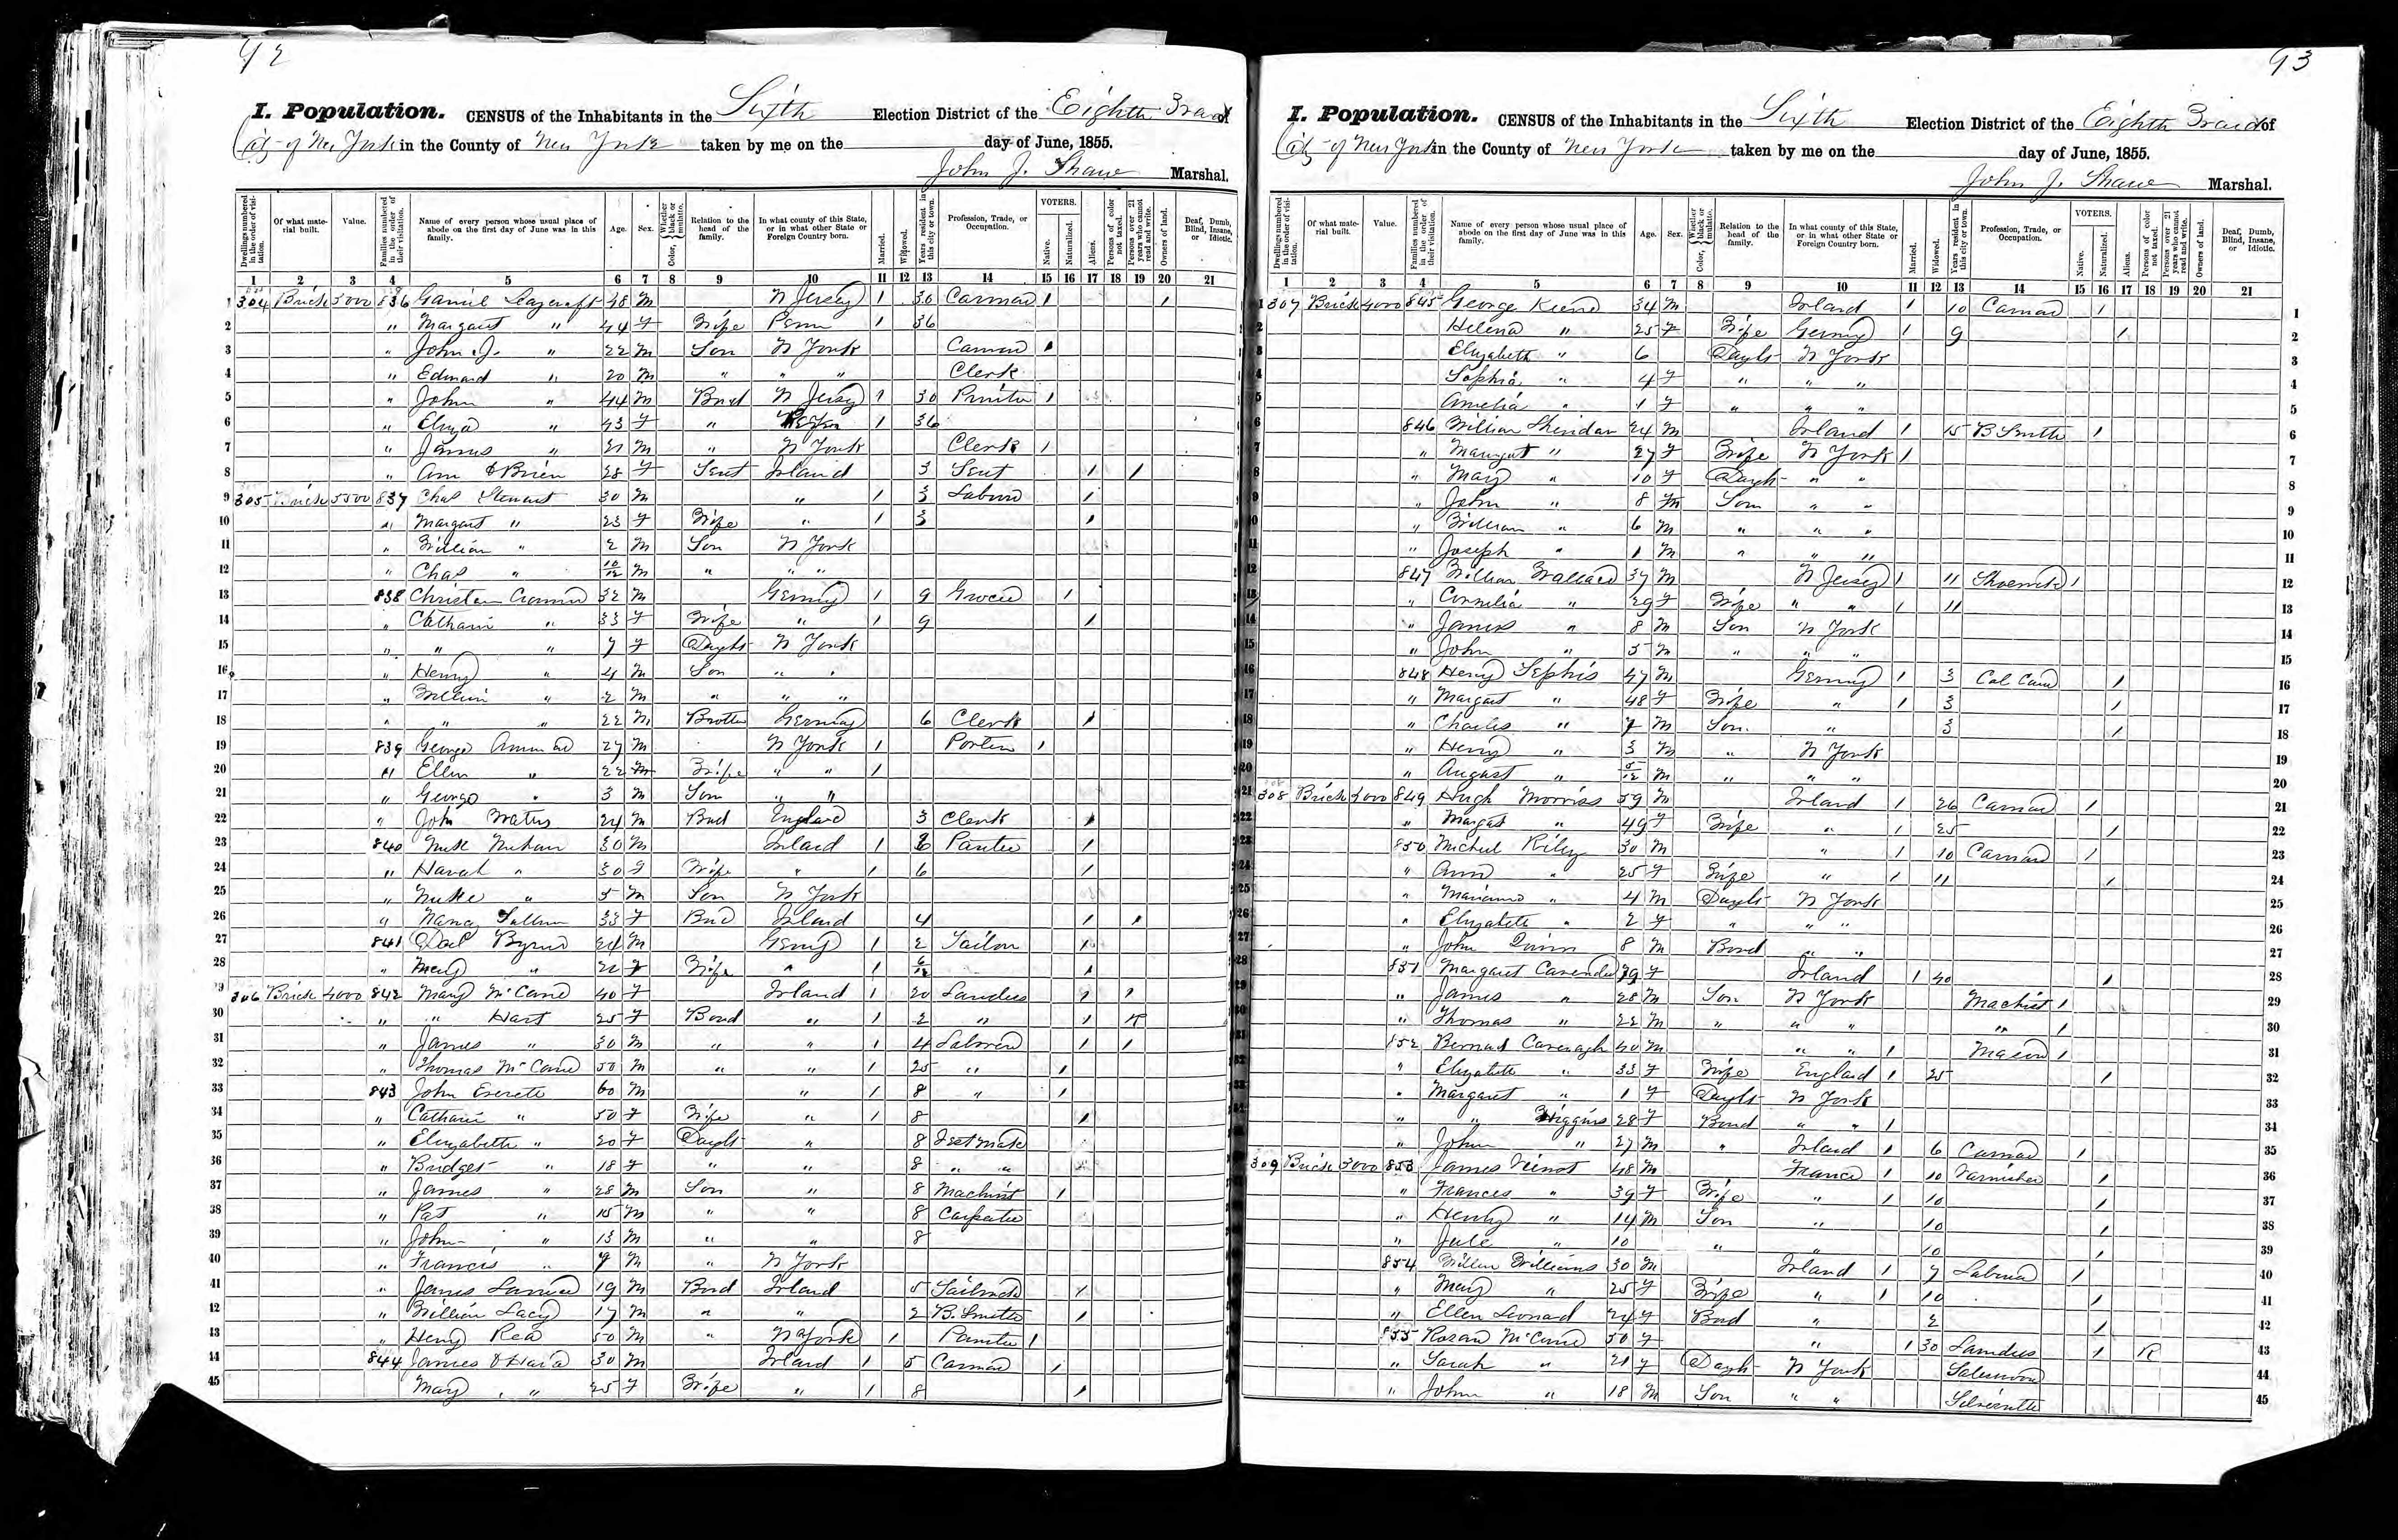 92
I. Population. CENSUS of the Inhabitants in the Sixth Election District of the Eighth Ward of
City of New York in the County of New York taken by me on the day of June, 1855.
John J. Shaw Marshal.
Dwellings numbered in the order of visitation. Of what material built. Value. Families numbered in the order of their visitation. Name of every person whose usual place of abode on the first day of June was in this family. Age. Sex. Color, Whether black or mulatto. Relation to the head of the family. In what county of this State, or in what other State or Foreign Country born. Married. Widowed. Years resident in this city or town. Profession, Trade, or Occupation. VOTERS. Native. Naturalized. Aliens. Persons of color not taxed. Persons over 21 years who cannot read and write. Owners of land. Deaf, Dumb, Blind, Insane, or Idiotic.
1 2 3 4 5 6 7 8 9 10 11 12 13 14 15 16 17 18 19 20 21
1 304 Brick 3000 836 48 M N Jersey 1 30 Carman 1 1
2 " Margaret " 44 F Wife Penn 1 36
3 " John J. " 22 M Son N York Carman 1
4 " Edward " 20 M " " " Clerk
5 " John " 44 M Bord N Jersey 1 30 1
6 " Eliza " 43 F " 1 36
7 " James " 21 M " N York Clerk 1
8 " Ann O Brien 28 F Servt Ireland 3 Servt 1 1
9 305 Brick 5500 837 Chas Stewart 30 M " 1 3 Labour 1
10 " Margaret " 23 F Wife " 1 3 1
11 " William " 2 M Son N York
12 " Chas " 10/12 M " " "
13 838 Christian 32 M Germy 1 9 Grocer 1
14 " Catharin " 33 F Wife " 1 9 1
15 " " " 7 F Daught N York
16 " Henry " 4 M Son " "
17 " William " 2 M " " "
18 " " " 22 M Brother Germay 6 Clerk 1
19 839 George 27 M N York 1 Porter 1
20 " Ellen " 22 Wife " " 1
21 " George " 3 M Son " "
22 " John Waters 24 M Bord England 3 Clerk 1
23 840 30 M Ireland 1 6 1
24 " " 30 F Wife " 1 6 1
25 " " 5 M Son N York
26 " 33 F Bord Ireland 4 1 1
27 841 Byrne 24 M Germy 1 2 Tailor 1
28 " Mary " 21 F Wife " 1 6/12 1
29 306 Brick 4000 842 Mary McCane 40 F Ireland 1 20 1 1
30 " " Hart 25 F Bord " 1 2 " 1 R
31 " James " 30 M " " 1 4 Laborer 1 1
32 " Thomas McCane 50 M " " 1 25 " 1
33 843 John Everett 60 M " 1 8 " 1
34 " Catharin " 50 F Wife " 1 8 1
35 " Elizabeth " 20 F Daught " 8
36 " Bridget " 18 F " " 8 " "
37 " James " 28 M Son " 8 Machinst 1
38 " Pat " 15 M " " 8 Carpenter
39 " John " 13 M " " 8
40 " Francis " 9 M " N York
41 " James 19 M Bord Ireland 5 1
42 " William Lacy 17 M " " 2 B. Smith 1
43 " Henry Rea 50 M " N York 1 Painter 1
44 844 James O Hara 30 M Ireland 1 5 Carman 1
45 Mary " 25 F Wife " 1 8 1
93
I. Population. CENSUS of the Inhabitants in the Sixth Election District of the Eighth Ward of
City of New York in the County of New York taken by me on the day of June, 1855.
John J. Shaw Marshal.
Dwellings numbered in the order of visitation. Of what material built. Value. Families numbered in the order of their visitation. Name of every person whose usual place of abode on the first day of June was in this family. Age. Sex. Color, Whether black or mulatto. Relation to the head of the family. In what county of this State, or in what other State or Foreign Country born. Married. Widowed. Years resident in this city or town. Profession, Trade, or Occupation. VOTERS. Native. Naturalized. Aliens. Persons of color not taxed. Persons over 21 years who cannot read and write. Owners of land. Deaf, Dumb, Blind, Insane, or Idiotic.
1 2 3 4 5 6 7 8 9 10 11 12 13 14 15 16 17 18 19 20 21
1 307 Brick 4000 845 George 34 M Ireland 1 10 Carman 1 1
2 Helena " 25 F Wife Germy 1 9 1 2
3 Elizabeth " 6 Daught N York 3
4 Sophia " 4 F " " " 4
5 Amelia " 1 F " " " 5
6 846 William Sheridan 24 M Ireland 1 15 B Smith 1 6
7 " Margaret " 27 F Wife N York 1 7
8 " Mary " 10 F Daught " " 8
9 " John " 8 M Son " " 9
10 " William " 6 M " " " 10
11 " Joseph " 1 M " " " 11
12 847 William Wallace 37 M N Jersey 1 11 Shoemak 1 12
13 " Cornelia " 29 F Wife " " 1 11 13
14 " James " 8 M Son N York 14
15 " John " 5 M " " " 15
16 848 Henry Sephis 47 M Germy 1 3 1 16
17 " Margaret " 48 F Wife " 1 3 1 17
18 " Charles " 7 M Son " 3 1 18
19 " Henry " 3 M " N York 19
20 " August " 5/12 M " " " 20
21 308 Brick 3000 849 Hugh Morriss 59 M Ireland 1 26 Carman 1 21
22 " Margat " 49 F Wife " 1 25 1 22
23 850 Michael Riley 30 M " 1 10 Carman 1 23
24 " Ann " 25 F Wife " 1 11 1 24
25 " " 4 M Daught N York 25
26 " Elizabeth " 2 F " " " 26
27 " John Quinn 8 M Bord " " 27
28 851 Margaret 79 F Ireland 1 40 1 28
29 " James " 28 M Son N York Machist 1 29
30 " Thomas " 22 M " " " " 1 30
31 852 Bernard Cavenagh 40 M " " 1 Mason 1 31
32 " Elizabeth " 33 F Wife England 1 25 1 32
33 " Margaret " 1 F Daught N York 33
34 " " Higgins 28 F Bord " " 1 34
35 " John " 27 M " Ireland 1 6 Carman 1 35
36 309 Brick 3000 853 James 48 M France 1 10 Varnisher 1 36
37 " Frances " 39 F Wife " 1 10 1 37
38 " Henry " 14 M Son " 10 1 38
39 " Jule " 10 " " 10 1 39
40 854 William Williams 30 M Ireland 1 7 Laborer 1 40
41 " Mary " 25 F Wife " 1 10 1 41
42 " Ellen Leonard 24 F Bord " 2 1 42
43 855 McCane 50 F " 1 30 1 R 43
44 " Sarah " 21 F Daugh N York 44
45 " John " 18 M Son " " 45